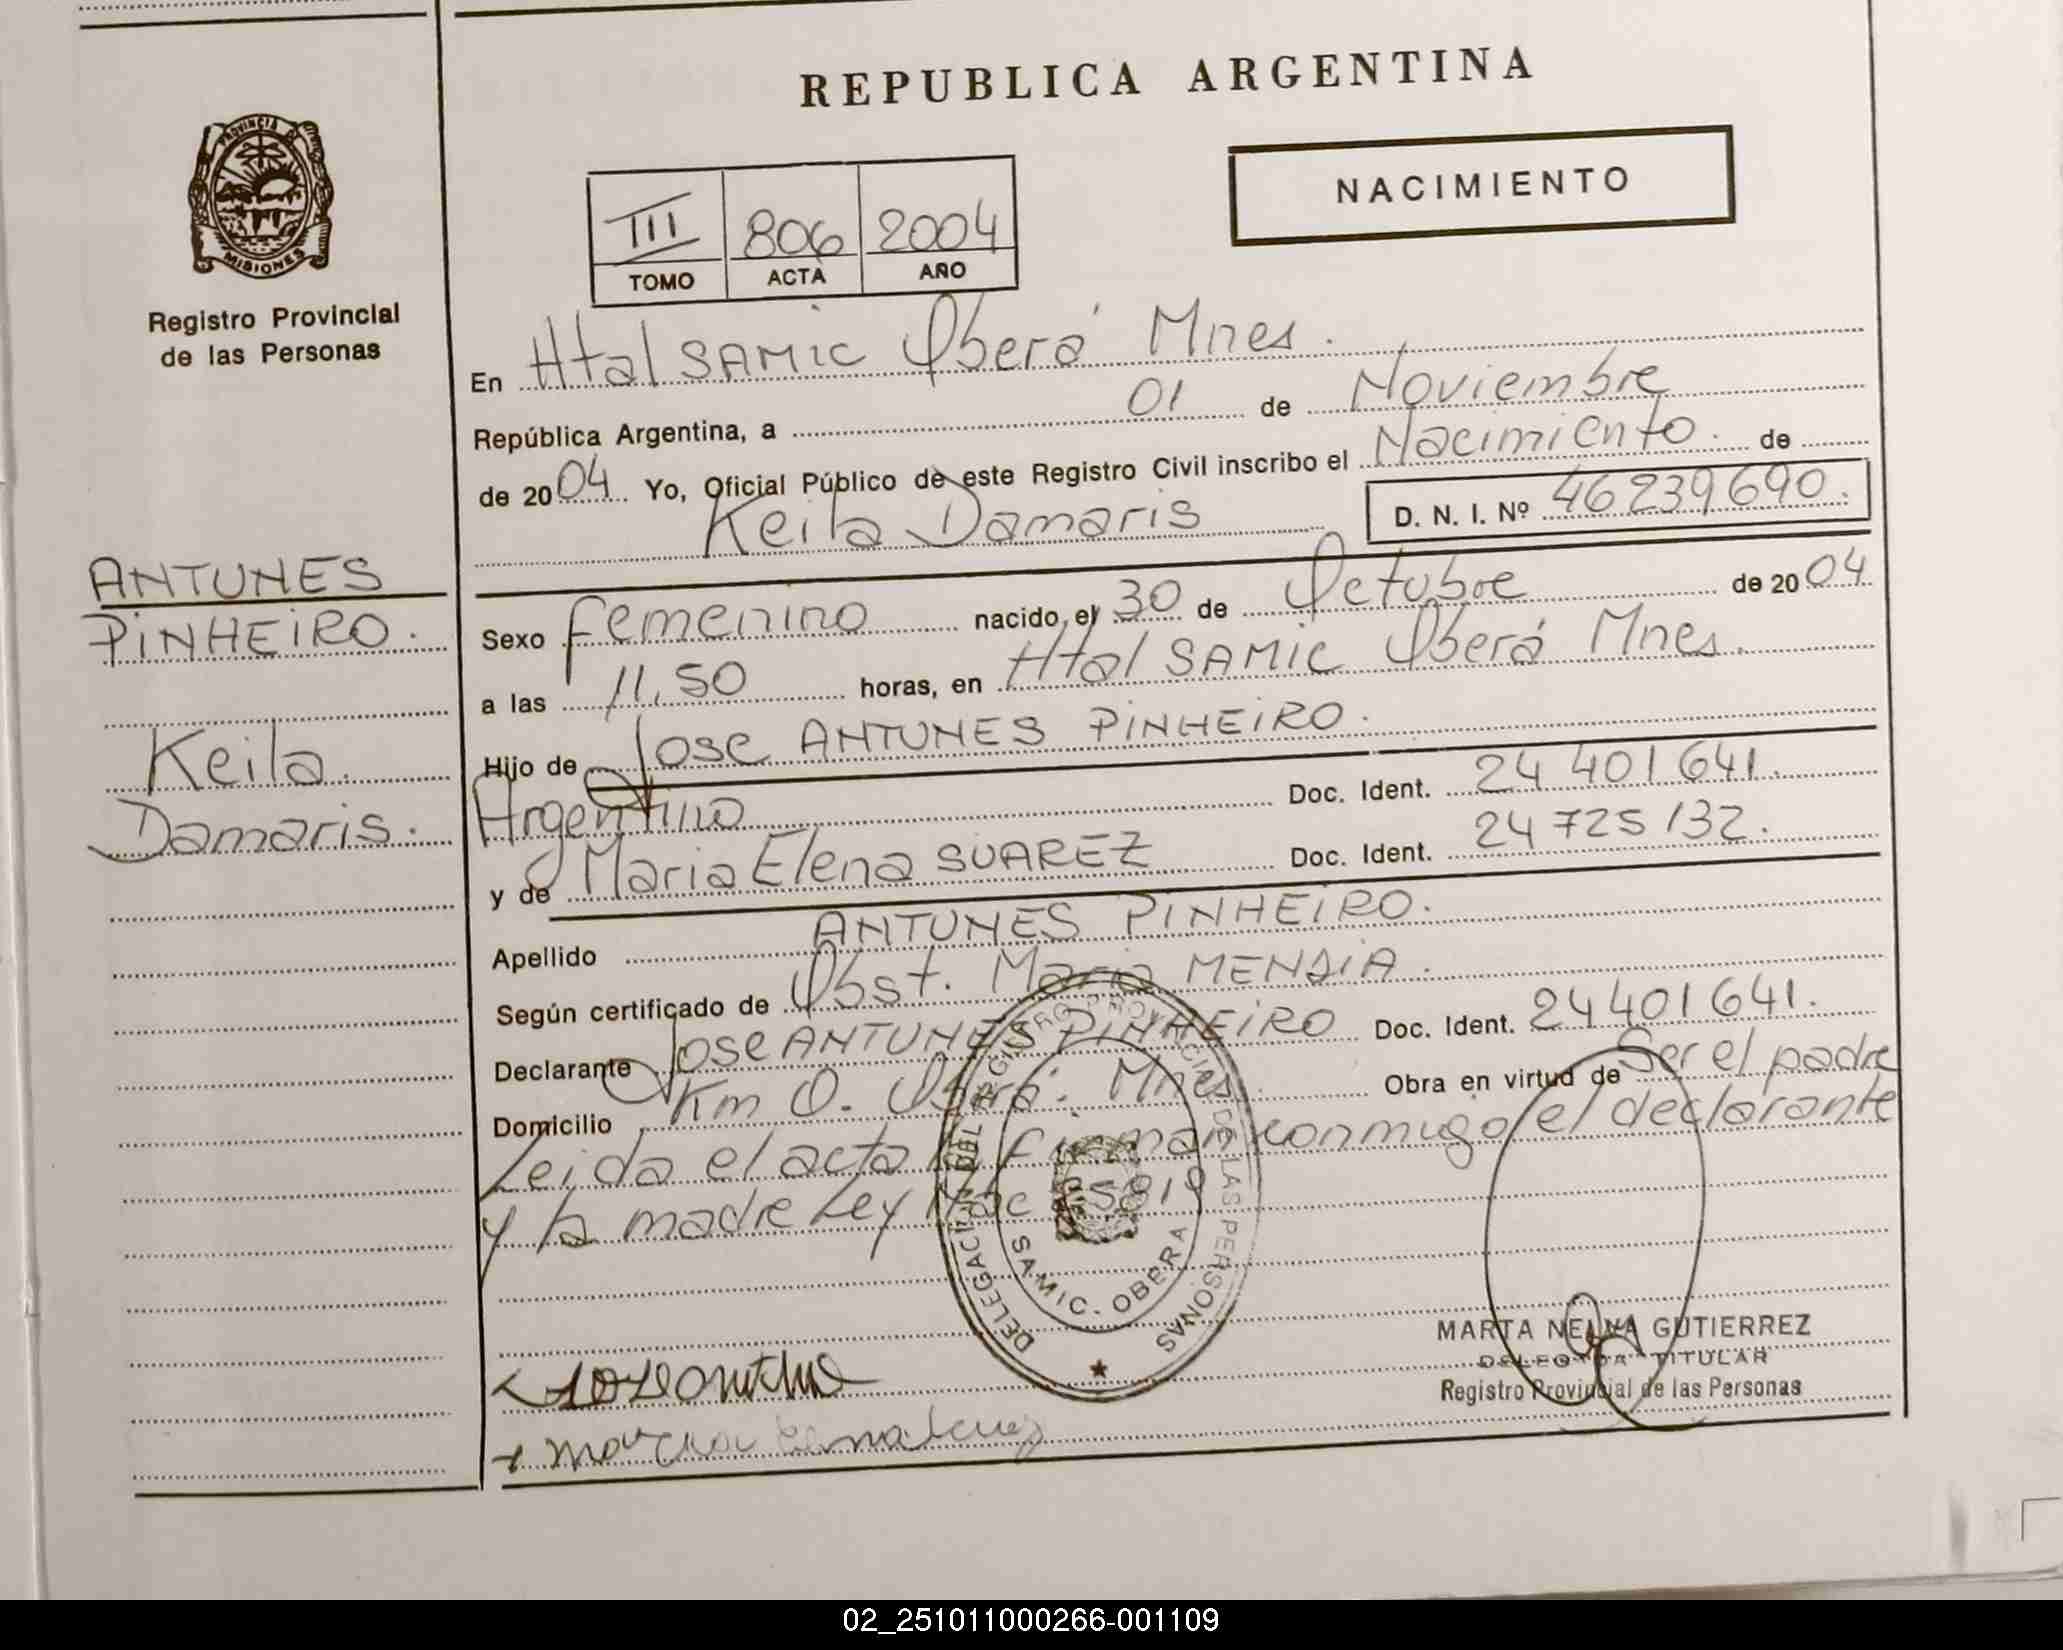 REPUBLICA ARGENTINA
PROVINCIA DE
MISIONES
Registro Provincial
de las Personas
NACIMIENTO
III 806 2004
TOMO ACTA AÑO
En Htal SAMIC Oberá Mnes.
República Argentina, a 01 de Noviembre
de 2004 Yo, Oficial Público de este Registro Civil inscribo el Nacimiento. de
Keila Damaris D. N. I. Nº 46239690.
ANTUNES
PINHEIRO.
Keila
Damaris.
Sexo femenino nacido, el 30 de Octubre de 2004
a las 11,50 horas, en Htal SAMIC Oberá Mnes.
Hijo de Jose ANTUNES PINHEIRO.
Argentino Doc. Ident. 24 401641.
y de Maria Elena SUAREZ Doc. Ident. 24 725132.
Apellido ANTUNES PINHEIRO.
Según certificado de Obst. Maria MENDIA.
Declarante Jose ANTUNES PINHEIRO Doc. Ident. 24401641.
Domicilio Km 0. Oberá. Mnes. Obra en virtud de Ser el padre
Leida el acta la firman conmigo el declarante
y la madre Ley Nac 25819
DELEGACION DEL REGISTRO PROVINCIAL DE LAS PERSONAS
SAMIC. OBERA
MARTA NELVA GUTIERREZ
DELEGADA TITULAR
Registro Provincial de las Personas
02_251011000266-001109